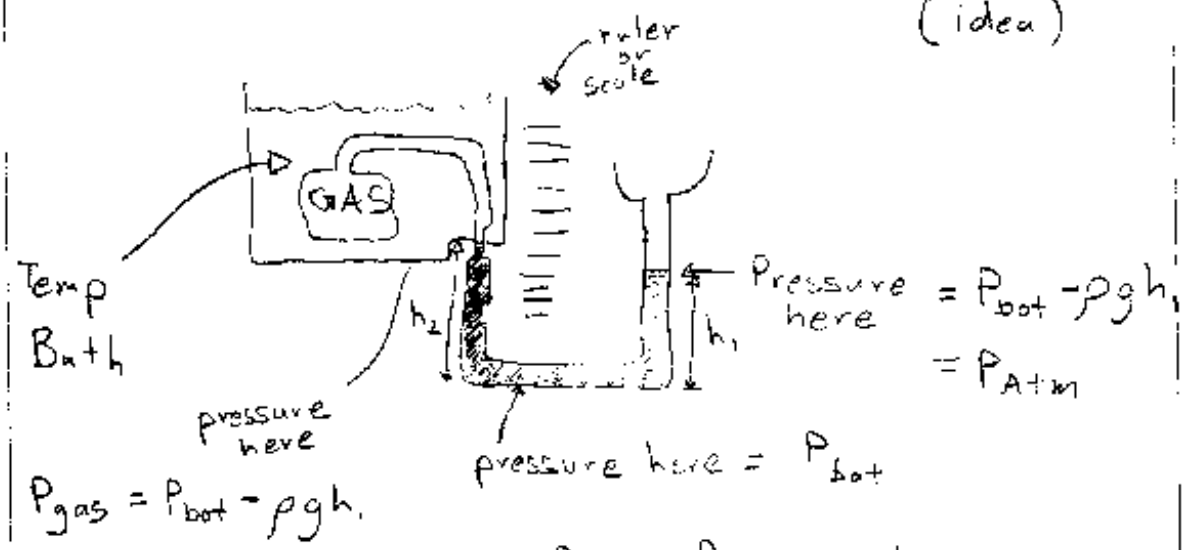 (idea)
ruler
or
scale
GAS
Temp
Bath
h₂
h₁
Pressure
here
= P_bot - ρgh₁
= P_Atm
pressure
here
pressure here = P_bot
P_gas = P_bot - ρgh.